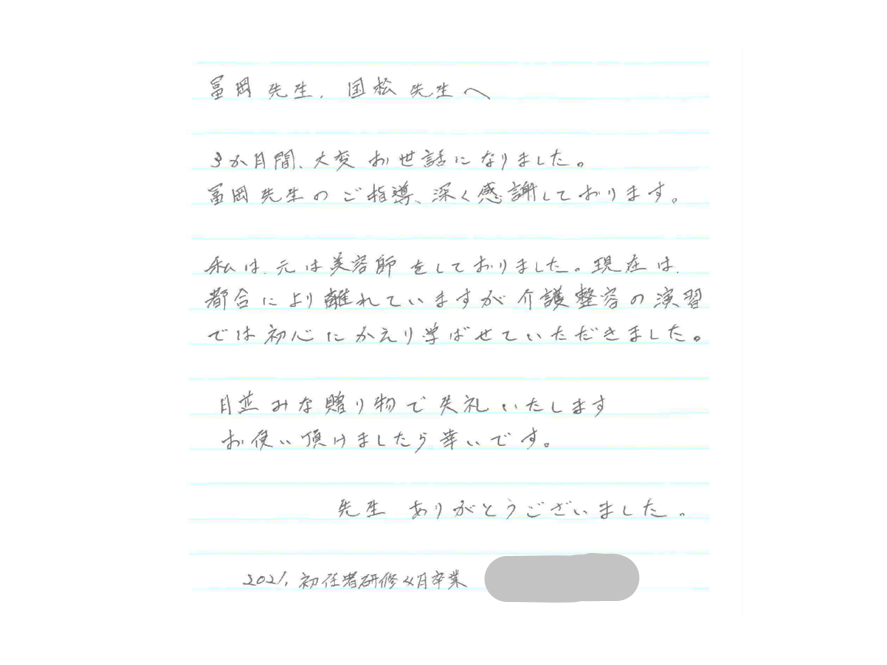 冨岡先生、国松先生へ
3か月間、大変お世話になりました。
冨岡先生のご指導、深く感謝しております。
私は、元は美容師をしておりました。現在は、
都合により離れていますが介護整容の演習
では初心にかえり学ばせていただきました。
月並みな贈り物で失礼いたします
お使い頂けましたら幸いです。
先生 ありがとうございました。
2021、初任者研修4月卒業